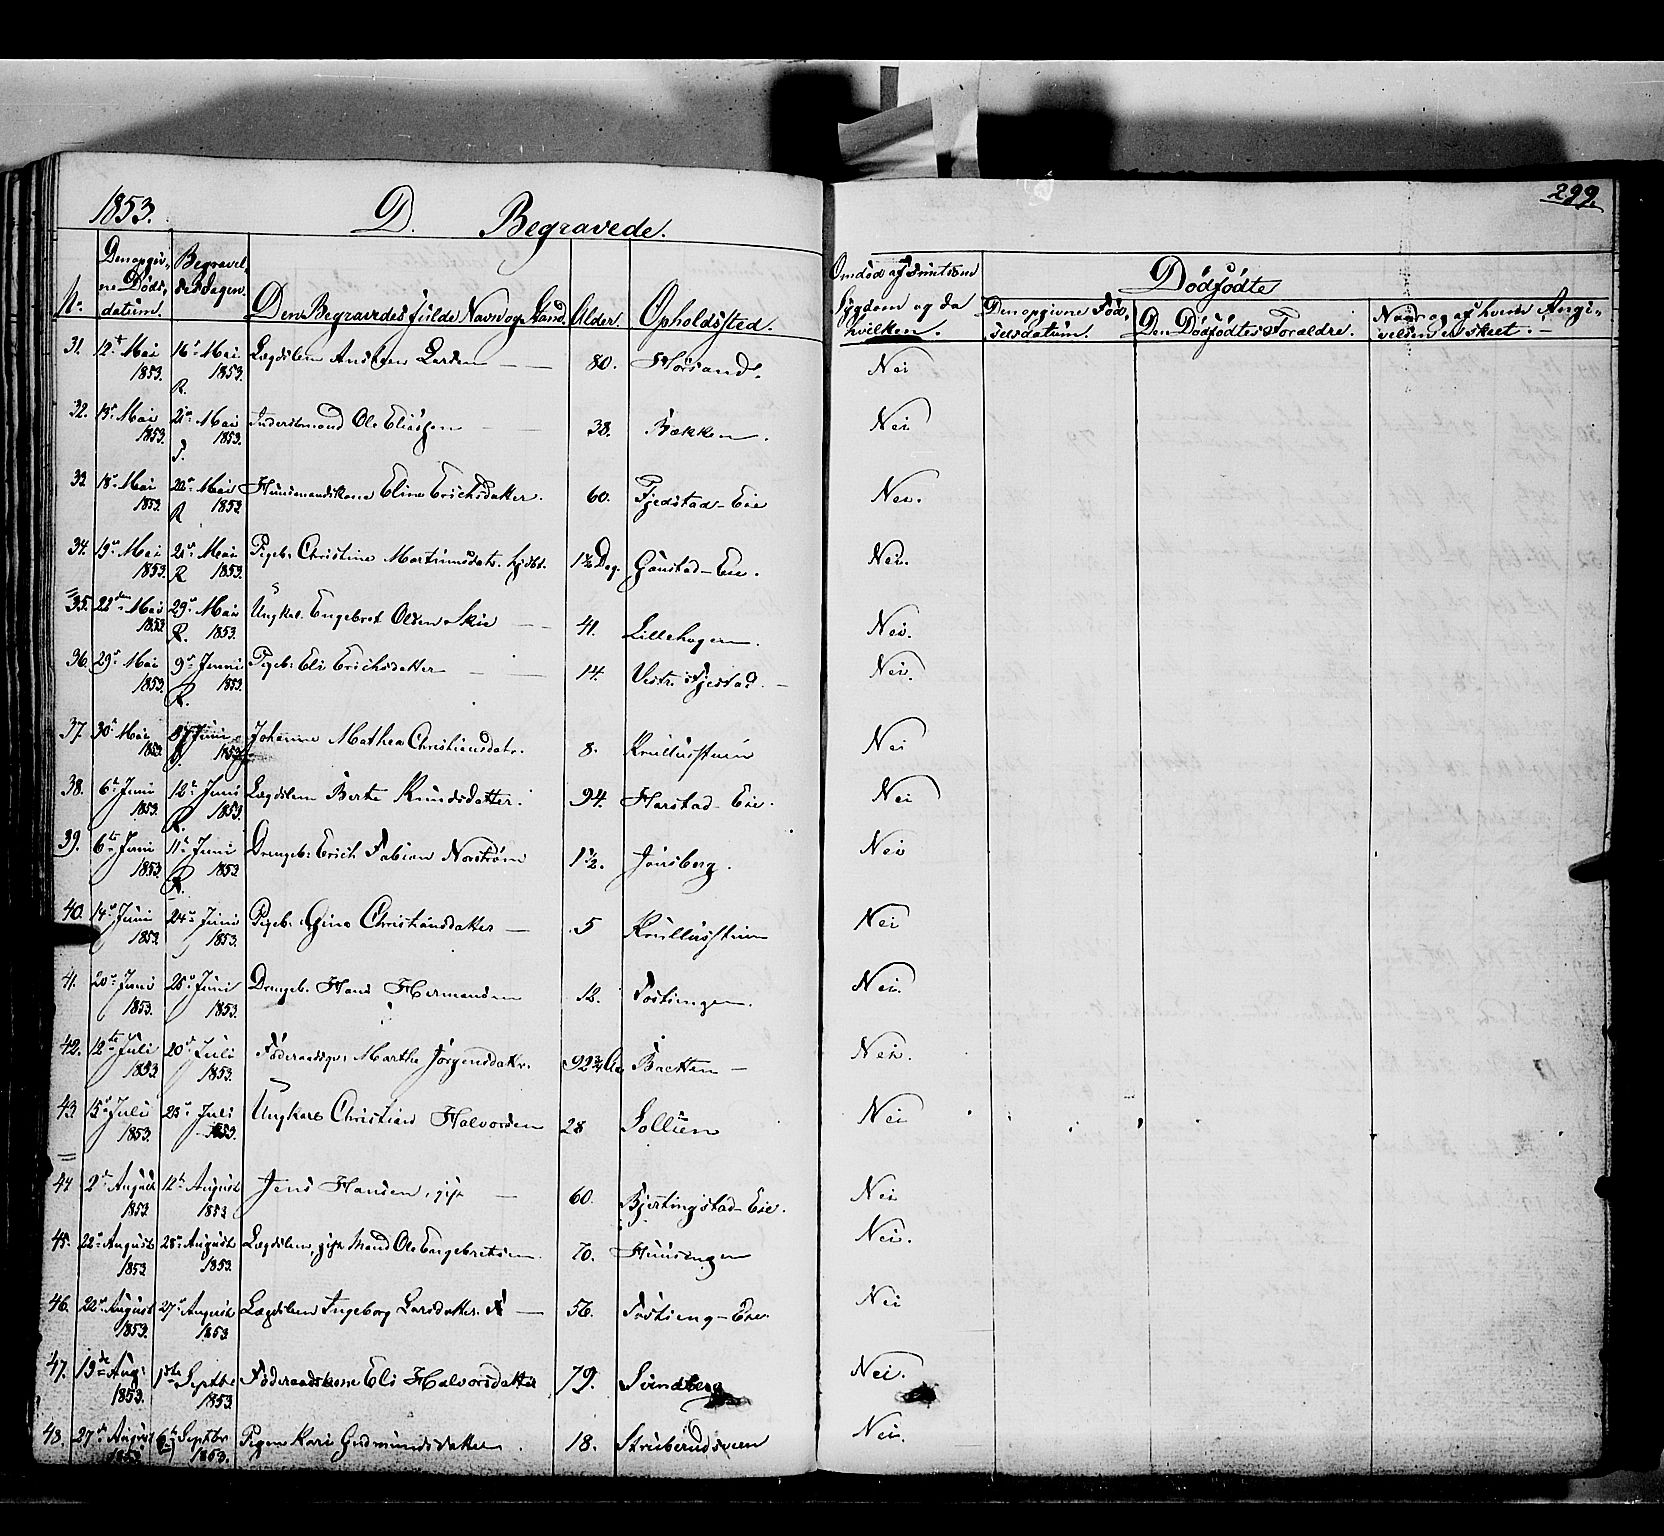 1853. D. Begravede. 299.
No. Den opgiv-ne Døds-datum. Begravel-sesdagen. Den Begravedes fulde Navn og Stand. Alder. Opholdssted. Om død af smitsom Sygdom og da hvilken. Dødfødte
Den opgivne Fød-selsdatum. Den Dødfødtes Forældre. Naar og af hvem Angi-velsen er skeet.
31. 12te Mai 1853. 16de Mai 1853. R. Lægdslem Anders Larsen 80. Nei
32. 13de Mai 1853. 21de Mai 1853. Inderstmand Ole Eliasen 38. Bækken. Nei
33. 18de Mai 1853. 22de Mai 1853. R Huusmandskone Eline Erichsdatter. 60. Fjedstad-Eie Nei.
34. 19de Mai 1853. 21de Mai 1853. R Pigeb: Christine Martinusdatr. hjdbt. Gaustad-Eie. Nei.
35. 22de Mai 1853 29de Mai 1853. R. Ungkal. Engebret Olsen Skie 41. Lillehagen. Nei.
36. 29de Mai 1853. 9de Junni 1853. R. Pigeb: Eli Erichsdatter 14. Vestre Fjestad. Nei.
37. 30de Mai 1853. Juni 1853 Johanne Mathea Christiansdatr. 8. Knullusstuen Nei
38. 6te Juni 1853. 12te Juni 1853. R. Lægdslem Berte Knudsdatter. 94. Harstad-Eie. Nei
39. 6te Juni 1853. 11te Juni 1853 R. Drengeb: Erich Fabian Norstrøm 1 1/2. Jønsberg. Nei
40. 14de Juni 1853. 24de Juni 1853. Pigeb: Gina Christiansdatter 5 Knullusstuen Nei
41. 20de Juni 1853. 28de Juni 1853. Drengeb. Hans Hermansen 12. Tostengen. Nei.
42. 12te Juli 1853 20de Juli 1853. Føderaadsp: Marthe Jørgensdatr. 92 3/4 Aar Bakken Nei.
43. 15de Juli 1853. 23de Juli 1853. Ungkarl Christian Halvorsen 28 Sollien Nei
44 2de August 1853. 12te August 1853 Jens Hansen, gift 60. Bjertingstad-Eie. Nei
45. 22de August 1853 28de August 1853. Lægdslem, gift Mand Ole Engebretsen. 70. Huusengen Nei.
46. 22de August 1853. 27de August 1853 Lægdslem Ingeborg Larsdatter 56. Tostieng-Eie. Nei
47. 19de Aug: 1853. 1ste Septbr 1853. Føderaadskone Eli Halvorsdatter 79. Svindberg Nei.
48. 27de August 1853 6te Septbr 1853. Pigen Kari Gudmundsdatter. 18. Struberudsveen Nei.